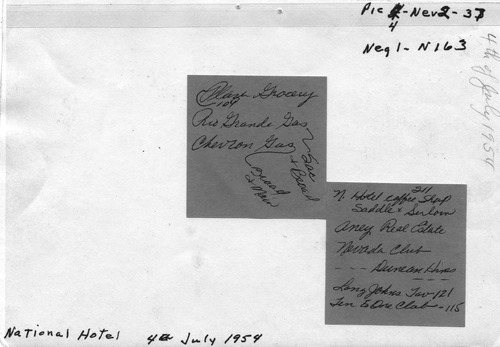 Pic 4-Nev2-37
Neg1-N163
4th of July 1954
Plaza Grocery
104
Rio Grande Gas
Chevron Gas
Sac
& Broad
Broad
& Main
211
N. Hotel coffee Shop
Saddle & Sirloin
Aney Real Estate
Nevada Club
--- Duncan Hines
Long Johns Tav-121
Ten to One Club-115
National Hotel 4th July 1954